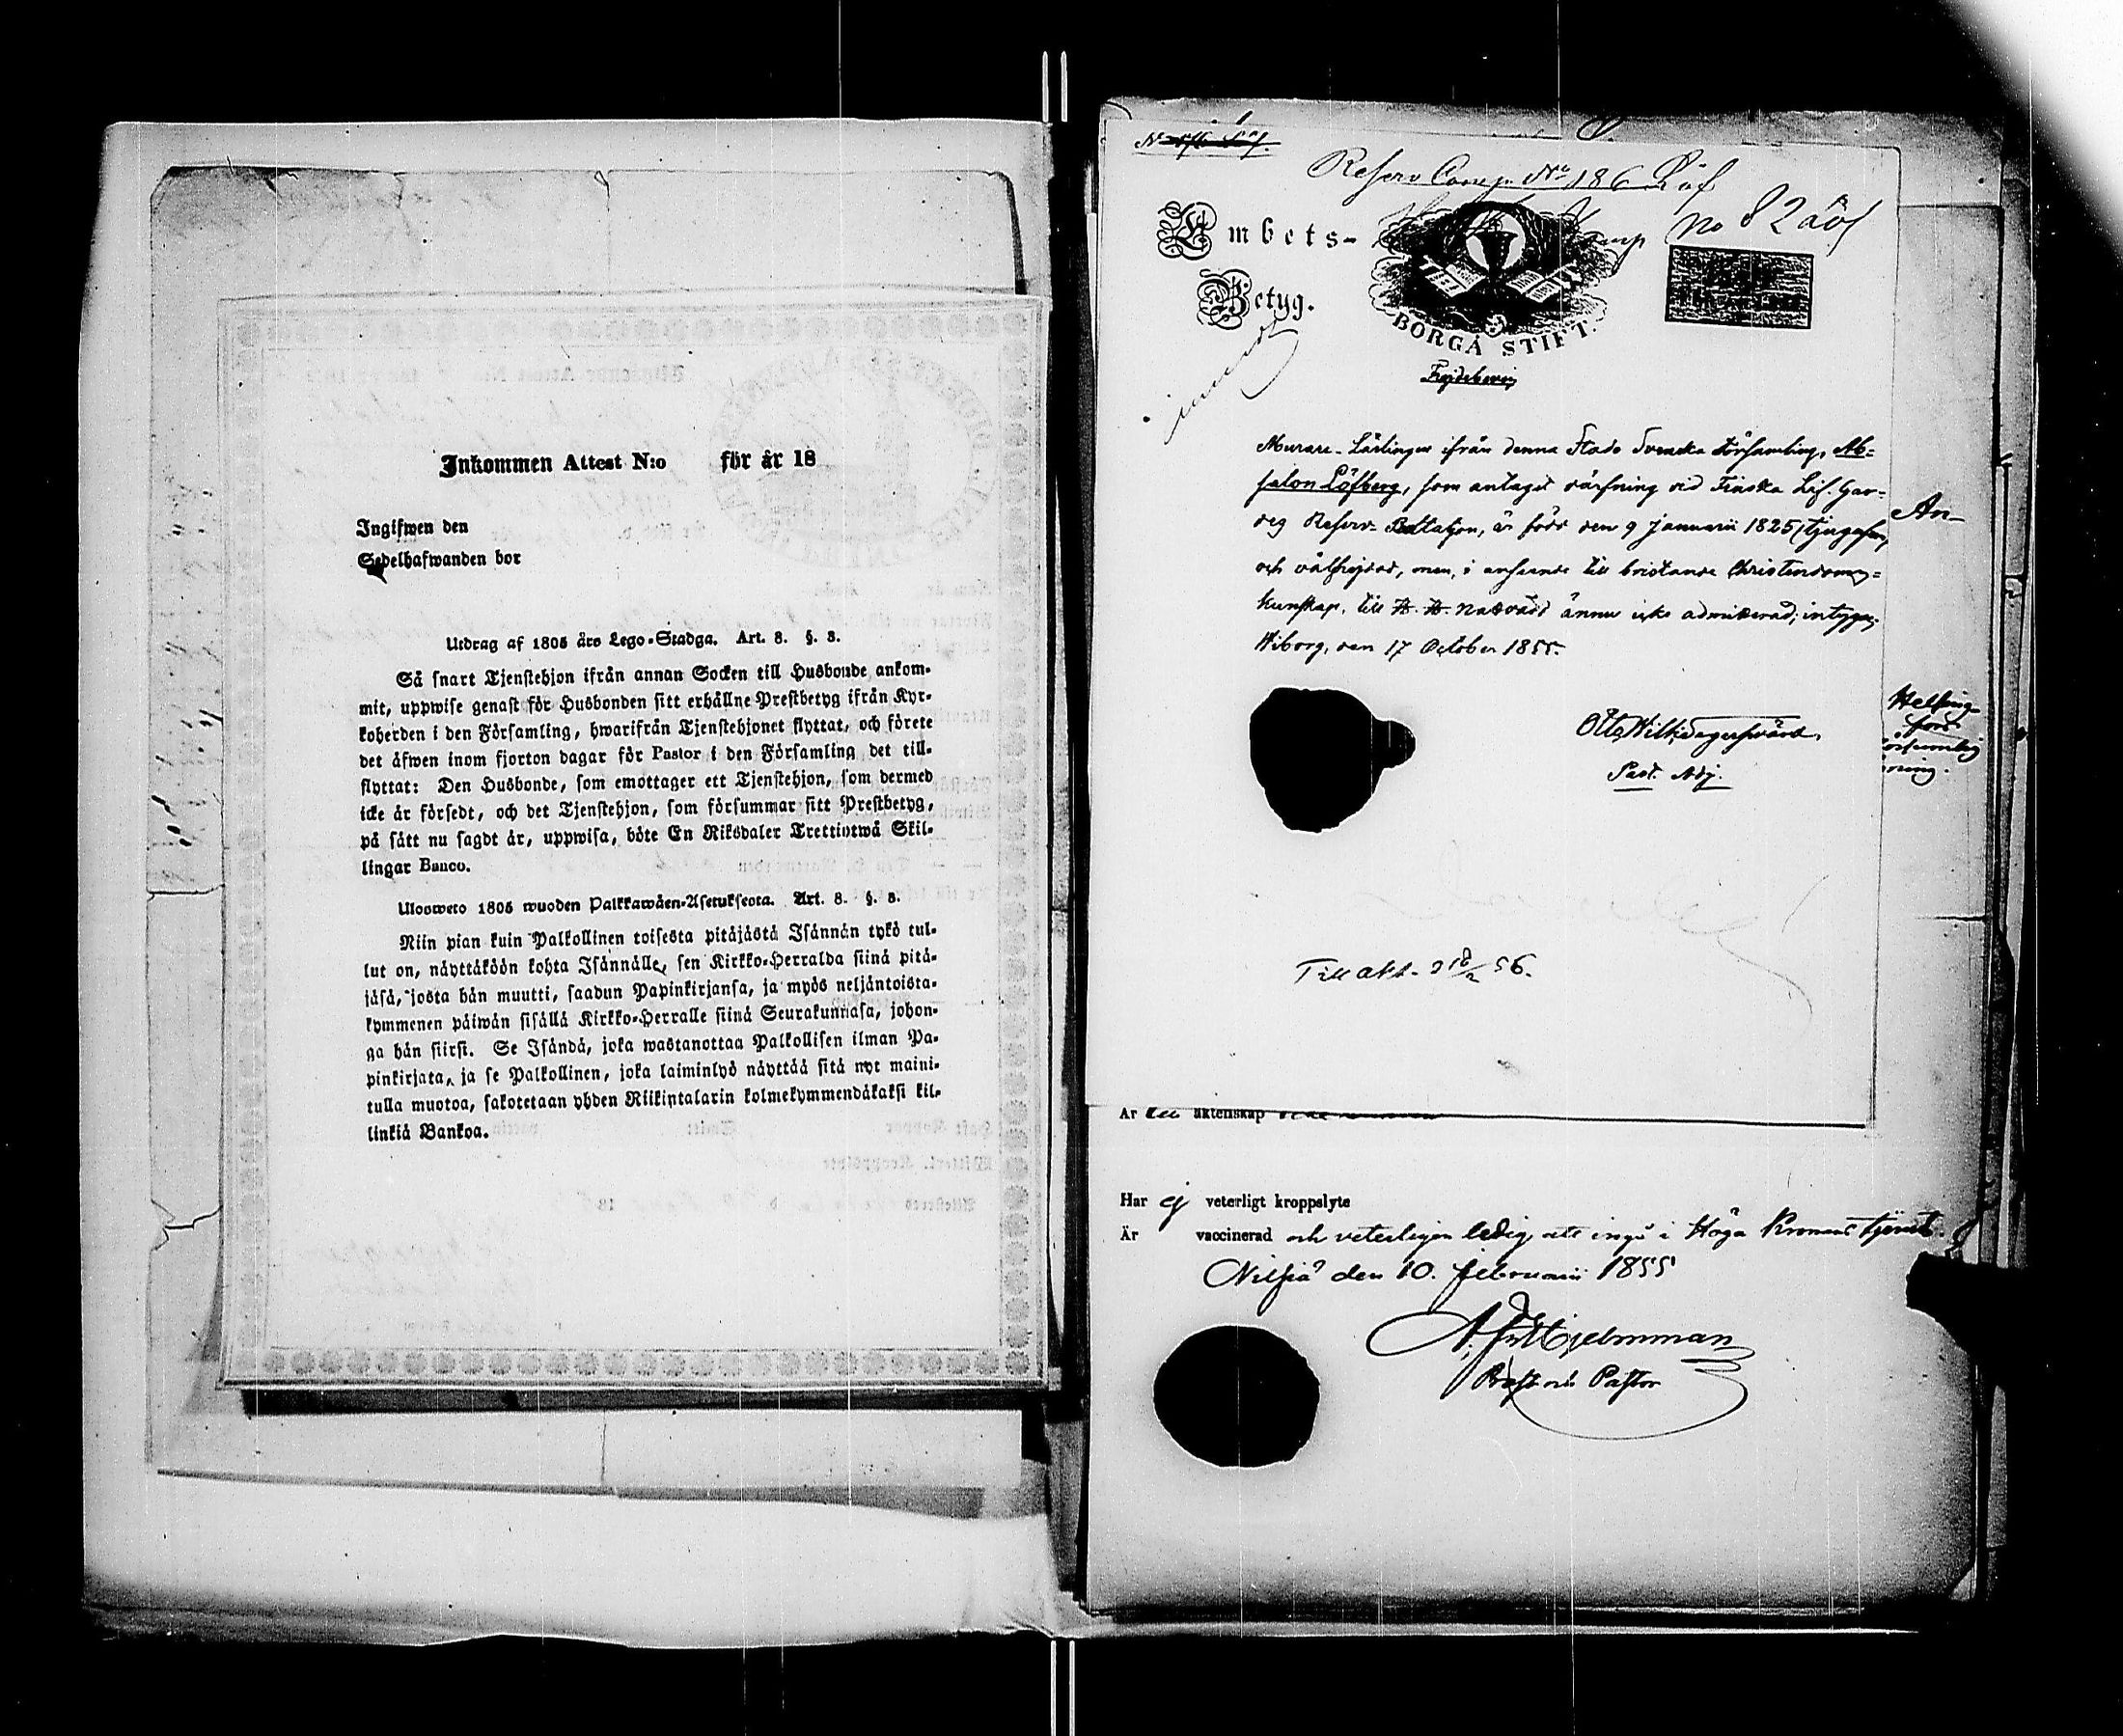 Inkommen Attest N:o för år 18
Ingifwen den
Sedelhafwanden bor
Utdrag af 1805 års Lego-Stadga. Art. 8. §. 3.
Så snart Tjenstehjon ifrån annan Socken till Husbonde ankom-
mit, uppwise genast för Husbonden sitt erhållne Prestbetyg ifrån Kyr-
koherden i den Församling, hwarifrån Tjenstehjonet flyttat, och förete
det äfwen inom fjorton dagar för Pastor i den Församling det till-
flyttat: Den Husbonde, som emottager ett Tjenstehjon, som dermed
icke är försedt, och det Tjenstehjon, som försummar sitt Prestbetyg,
på sätt nu sagdt är, uppwisa, böte En Riksdaler Trettiotwå Skil-
lingar Banco.
Uloosweto 1805 wuoden Palkkawäen-Asetuksesta. Art. 8. §. 3.
Niin pian kuin Palkollinen toisesta pitäjästä Isännän tykö tul-
lut on, näyttäköön kohta Isännälle, sen Kirkko-Herralda siinä pitä-
jäsä, josta hän muutti, saadun Papinkirjansa, ja myös neljäntoista-
kymmenen päiwän sisällä Kirkko-Herralle siinä Seurakunnasa, johon-
ga hän siirsi. Se Isändä, joka wastanottaa Palkollisen ilman Pa-
pinkirjata, ja se Palkollinen, joka laiminlyö näyttää sitä nyt maini-
tulla muotoa, sakotetaan yhden Riikintalarin kolmekymmendäkaksi kil-
linkiä Bankoa.
Reserv Comp. No 186 Löf
No 82
Embets-
Betyg.
BORGÅ STIFT.
Frejdebevis
Murare-Lärlingen ifrån denna Stads Svenska Församling, Ab-
salon Löfberg, som antagit värfning vid Finska Lif-Gar-
des Reserv-Bataljon, är född den 9 Januarii 1825 (tjugufem)
och välfrejdad, men, i anseende till bristande Christendoms-
kunskap, till H. H. Nattvard ännu icke admitterad; intygas;
Wiborg, den 17 October 1855.
Otto Wilh.
Past. Adj.
An-
Helsing-
fors
Till akt. d 18/2 56.
Är till äktenskap
Har ej veterligt kroppslyte
Är vaccinerad och veterligen ledig att ingå i Höga Kronans tjenst.
Nilsiä den 10. februarii 1855
Hjelmman
Prost och Pastor